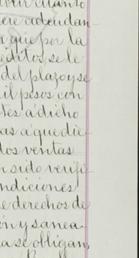 cuanto
adeudan
que por la
réditos, se le
del plazo y se
mil pesos con
tes á dicho
as á que die
dos ventas
n sido verifi
ndiciones
e derechos de
ón y sanea
a se obligan